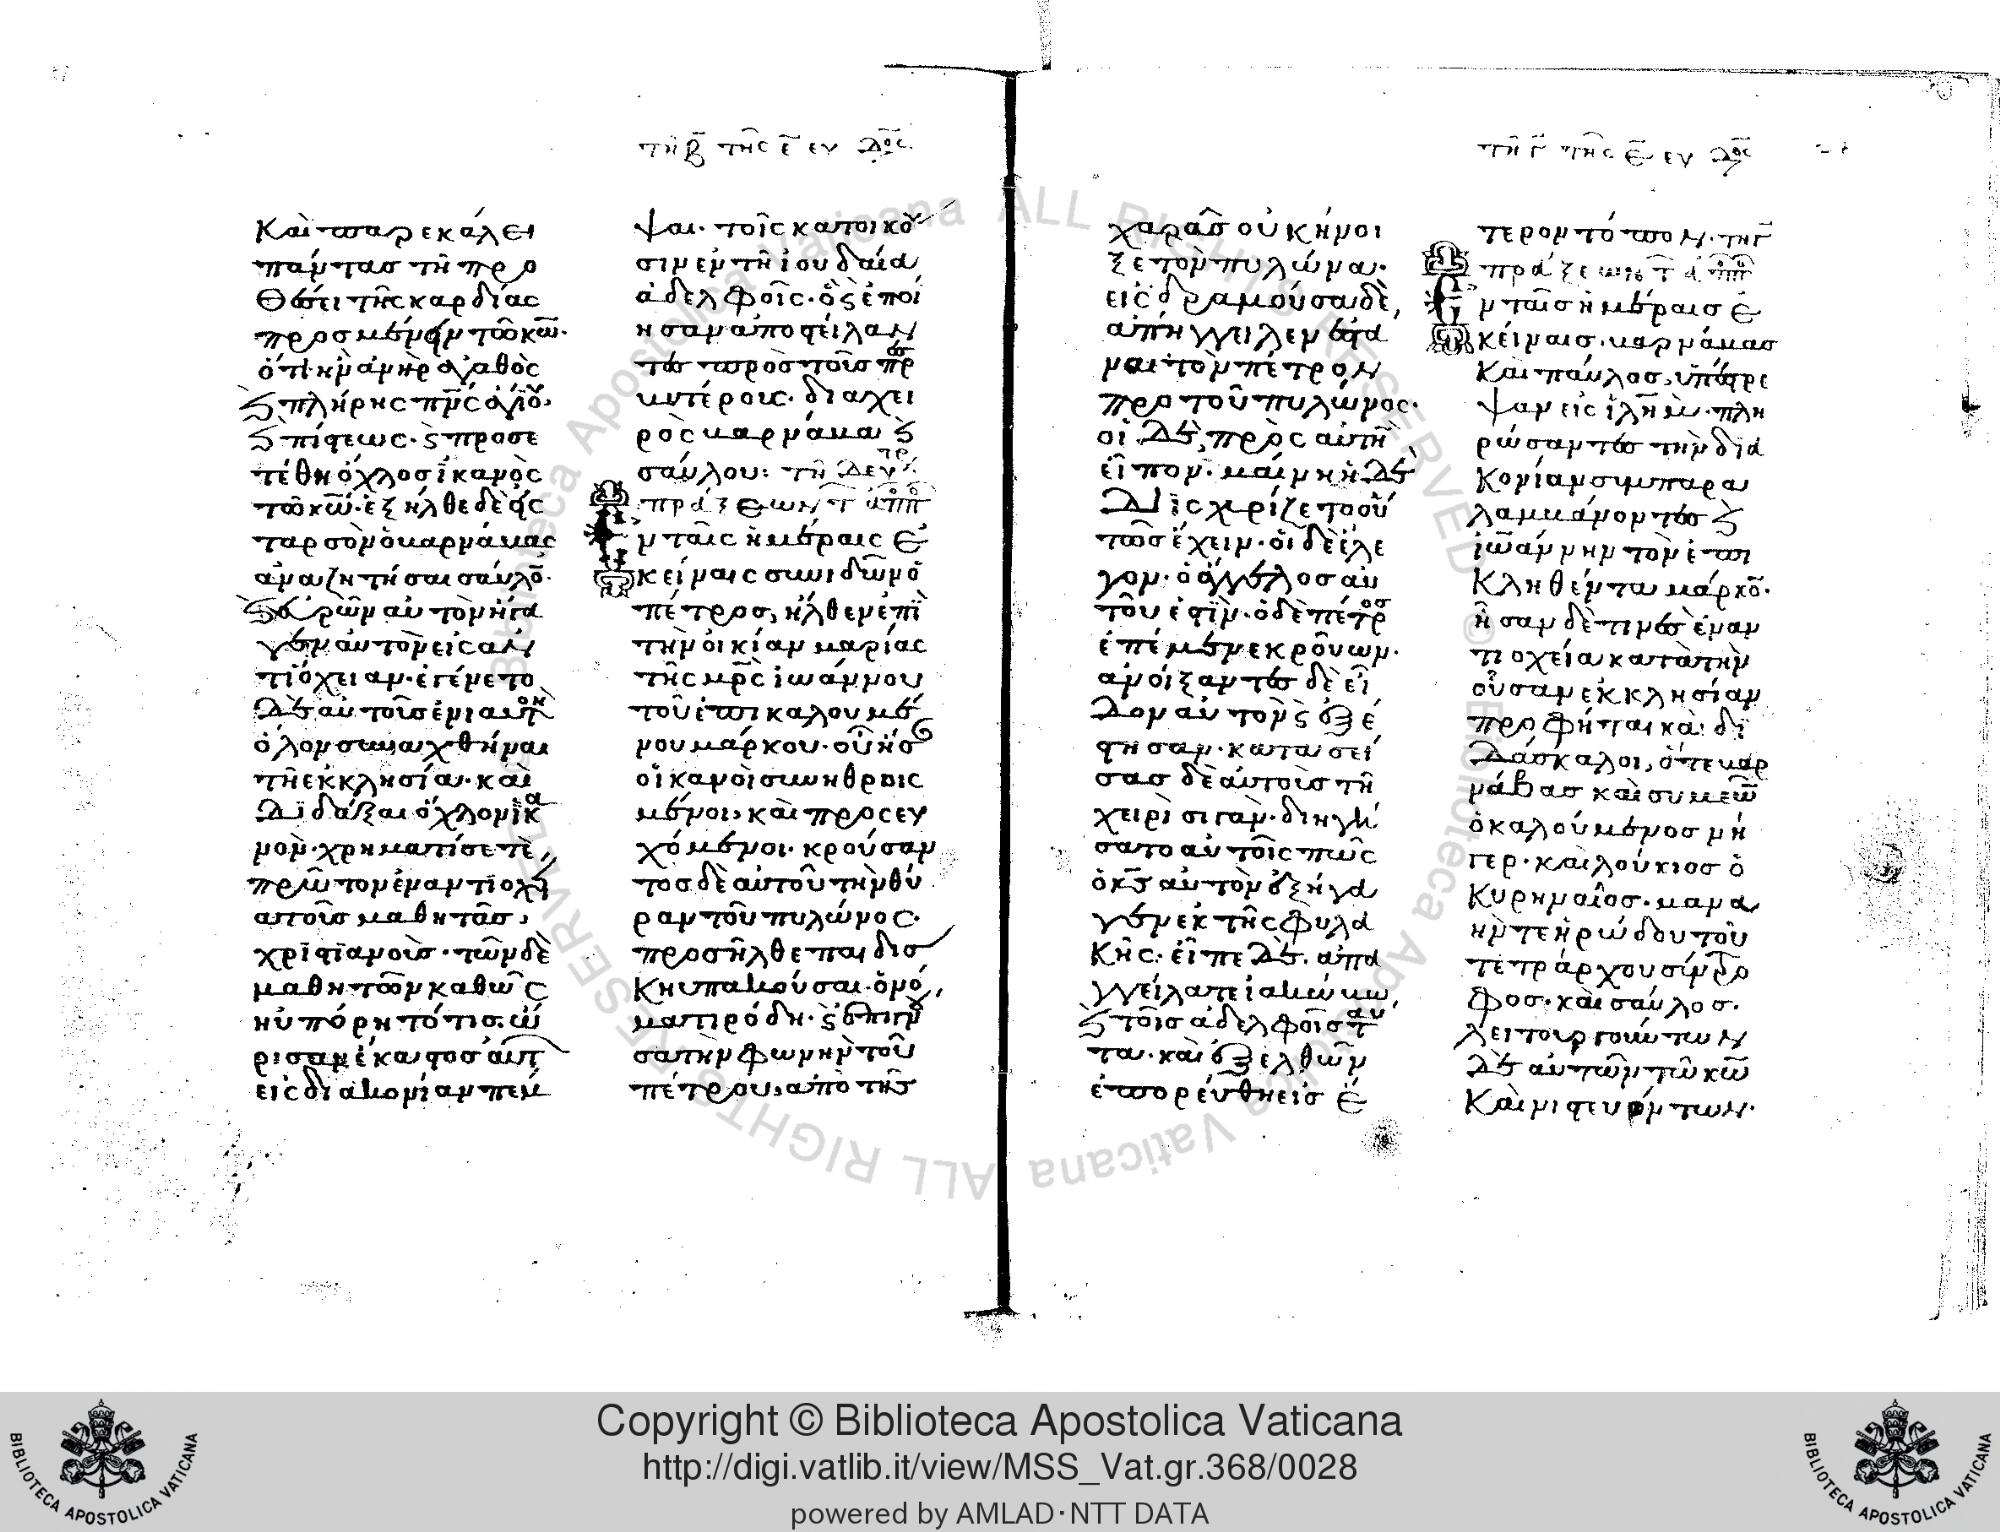 τῆ β̅ τῆς ε̅ ευ δο̅ς
Καὶ παρεκάλει
πάντας τῆ προ
θέσει τῆς καρδίας
προσμένειν τῶ κω̅·
ὅτι ἦν ἀνὴρ ἀγαθὸς
ϗ πλήρης πν̅ς ἁγίου,
ϗ πίστεως· ϗ προσε
τέθη ὄχλος ἱκανὸς
τῶ κω̅· ἐξῆλθε δὲ εἰς
ταρσὸν ὁ βαρνάβας
ἀναζητῆσαι σαῦλον·
ϗ εὑρὼν αὐτὸν ἤγα
γεν αὐτὸν εἰς ἀν
τιόχειαν· ἐγένετο
δὲ αὐτοῖς ἐνιαυτὸν
ὅλον συναχθῆναι
τῆ ἐκκλησία· καὶ
διδάξαι ὄχλον ἱκα
νὸν· χρηματίσε τὲ
πρῶτον ἐν ἀντιοχεία
τοὺς μαθητὰς,
χριστιανοὺς· τῶν δὲ
μαθητῶν καθὼς
ηὐπόρητό τις· ὥ
ρισαν ἕκαστος αὐτ
εἰς διακονίαν πέμ
ψαι· τοῖς κατοικοῦ
σιν ἐν τῆ ἰουδαία
ἀδελφοῖς· ὃ ϗ ἐποί
ησαν ἀποστείλαν
τες πρὸς τοὺς πρεσ
βυτέρους· διὰ χει
ρὸς βαρνάβα ϗ
σαύλου: τῆ δευτρ
πράξεων τ ἀπο
Εν ταῖς ἡμέραις ἐ
κείναις συνιδὼν ὁ
πέτρος, ἦλθεν ἐπὶ
τὴν οἰκίαν μαρίας
τῆς μρ̅ς ἰωάννου
τοῦ ἐπικαλουμέ
νου μάρκου· οὗ ἦσ
οἱκανοὶ συνηθροισ
μένοι, καὶ προσευ
χόμενοι· κρούσαν
τος δὲ αὐτοῦ τὴν θύ
ραν τοῦ πυλῶνος·
προσῆλθε παιδίσ
κη ὑπακούσαι· ὀνό,
ματι ῥόδη· ϗ ἐπιγνοῦ
σα τὴν φωνὴν τοῦ
πέτρου, ἀπὸ τῆς
τῆ γ̅ τῆς ε̅ ευ δο̅ς
χαρᾶς οὐκ ἤνοι
ξε τὸν πυλῶνα·
εἰσδραμοῦσα δὲ,
ἀπήγγειλεν ἑστά
ναι τὸν πέτρον
πρὸ τοῦ πυλῶνος·
οἱ δὲ, πρὸς αὐτὴν
εἶπον· μαίνη ἡ δὲ
διϊσχυρίζετο οὕ
τως ἔχειν· οἱ δὲ ἔλε
γον· ὁ ἄγγελος αὐ
τοῦ ἐστὶν· ὁ δὲ πέτρος
ἐπέμενε κρούων·
ἀνοίξαντες δὲ εἶ
δον αὐτὸν ϗ ἐξέ
στησαν· κατασεί
σας δὲ αὐτοῖς τῆ
χειρὶ σιγᾶν· διηγή
σατο αὐτοῖς πῶς
ὁ κς̅ αὐτὸν ἐξήγα
γεν ἐκ τῆς φυλα
κῆς· εἶπε δὲ· ἀπα
γγείλατε ἰακώβω,
ϗ τοῖς ἀδελφοῖς ταῦ
τα· καὶ ἐξελθὼν
ἐπορεύθη εἰς ἕ
τερον τόπον· τῆ γ̅
πράξεων τ̅ ἀπο
Εν ταῖς ἡμέραις ἐ
κείναις· βαρνάβας
Καὶ παῦλος, ὑπέστρε
ψαν εἰς ἱλη̅μ· πλη
ρώσαντες τὴν δια
κονίαν συμπαρα
λαμβάνοντες ϗ
ἰωάννην τὸν ἐπι
κληθέντα μάρκον·
ἦσαν δὲ τινὲς ἐν ἀν
τιοχεία κατὰ τὴν
οὖσαν ἐκκλησίαν
προφῆται καὶ δι
δάσκαλοι, ὅ τε βαρ
νάβας καὶ συμεὼν
ὁ καλούμενος νί
γερ· καὶ λούκιος ὁ
κυρηναῖος· μανα
ήν τε ἡρώδου τοῦ
τετράρχου σύντρο
φος· καὶ σαῦλος·
λειτουργούντων
δὲ αὐτῶν τῶ κω̅
Καὶ νηστευόντων·
Copyright © Biblioteca Apostolica Vaticana
http://digi.vatlib.it/view/MSS_Vat.gr.368/0028
powered by AMLAD·NTT DATA
BIBLIOTECA APOSTOLICA VATICANA
BIBLIOTECA APOSTOLICA VATICANA